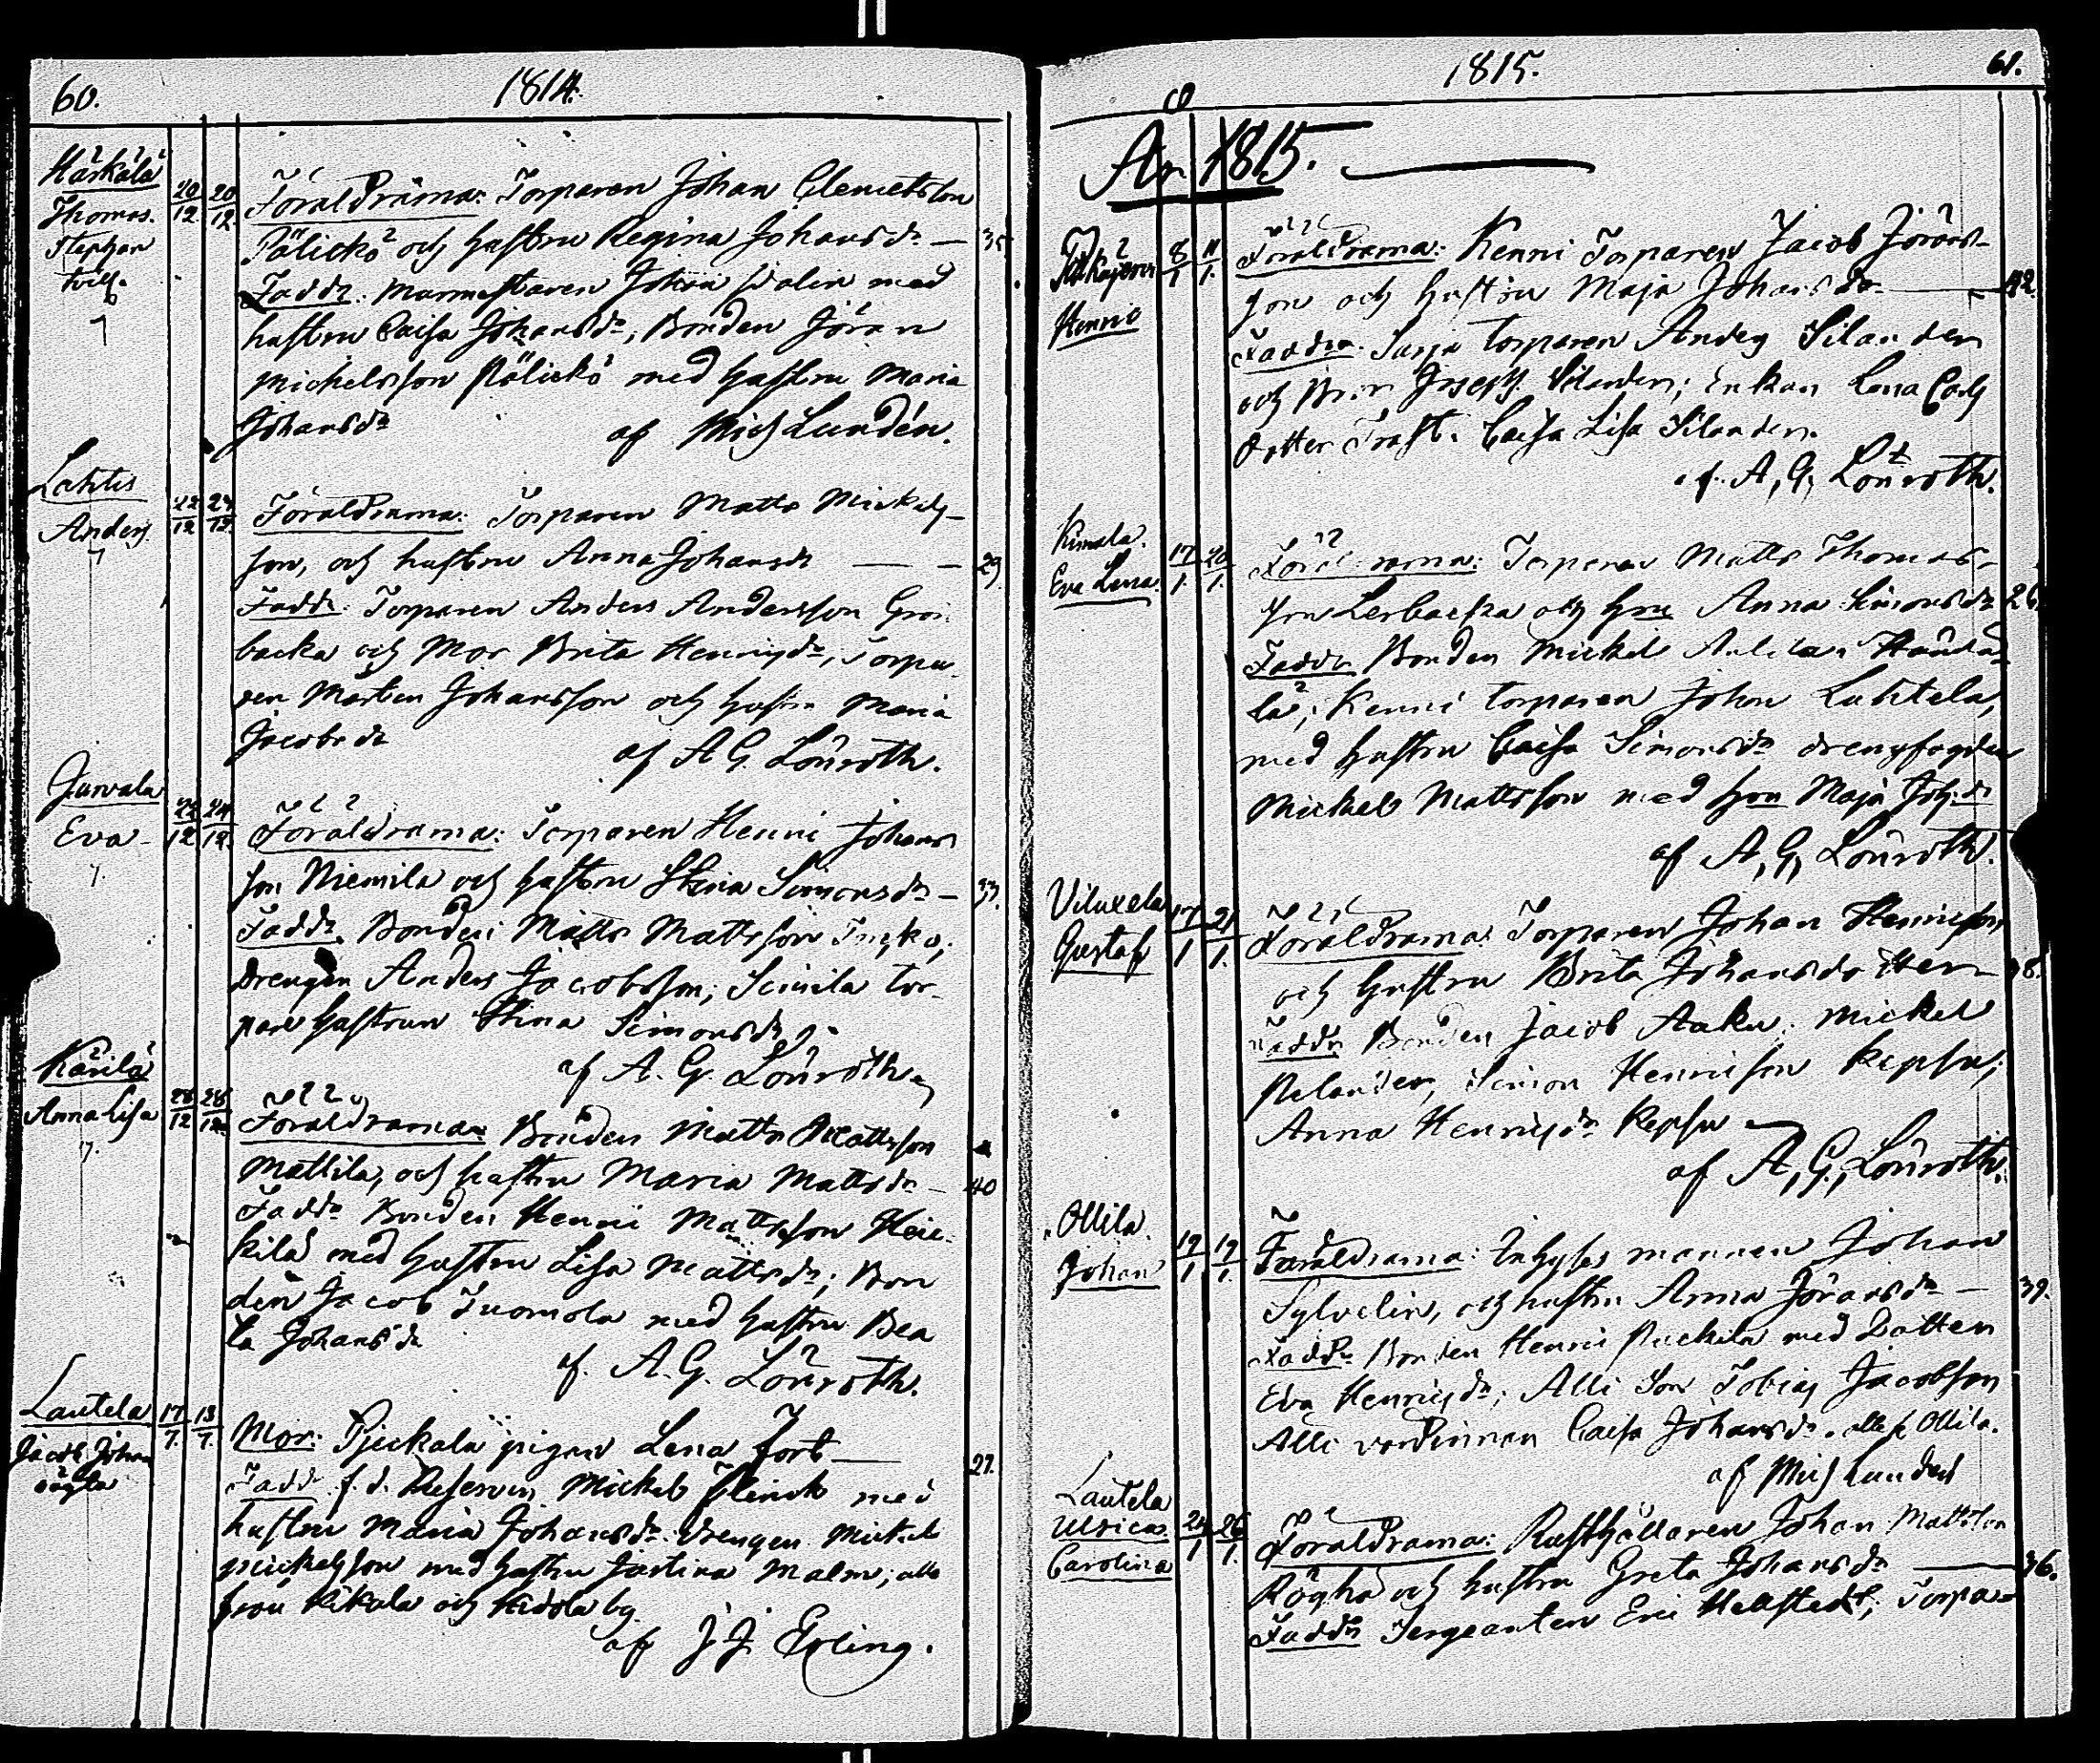 60.
1814.
Härkälä
Thomas.
Stephan
tvill.
7
20/12 20/12
Föräldrarna: Torparen Johan Clemetsson
Pölickö och hustru Regina Johansdr —
Faddr: Murmestaren Johan Walin med
hustru Caisa Johansdr; Bonden Jöran
Michelsson Pölickö med hustru Maria
Johansdr
af Mich Lundén.
Lahtis
Anders
7
22/12 27/12
Föräldrarna: Torparen Matts Mickels-
son, och hustru Anna Johansdr — — 29.
Faddr: Torparen Anders Andersson
backa och Mor Brita Henricsdr, Torpa-
ren Mårten Johansson och hustru Maria
Jacobsdr
af A G. Lönroth.
Jurvala
Eva
7.
22/12 24/12
Föräldrarna: Torparen Henric Johans
son Niemilä och hustru Stina Simonsdr — 33.
Faddr. Bonden Matts Mattsson
drengen Anders Jacobsson; Seinilä tor-
pare hustrun Stina Simonsdr.
af A. G. Lönroth
Kärilä
Anna Lisa
7.
28/12 28/12
Föräldrarna: Bonden Matts Mattsson
Mattila, och hustru Maria Mattsdr — 40
Faddr Bonden Henric Mattsson Heic-
kilä med hustru Lisa Mattsdr; Bon
den Jacob Tuomola med hustru Bea
ta Johansdr
af. A. G. Lönroth.
Lautela
Jacob Johan
oägta
17/7. 18/7.
Mor: Pjeckala pigan Lena Fort — 27.
Fadd f. d. Reserven Mickel Flinck med
hustru Maria Johansdr. drengen Mickel
Mickelsson med hustru Justina Malm; alla
från Kikala och Hidola by.
af J J. Erling.
1815.
61.
År 1815.
Henric
8/1 11/1.
Föräldrarna: Kenni Torparen Jacob Jörans-
son och hustru Maja Johansdr — 42.
Faddrr. Torparen Anders Silander
och Br:n Joseph Silander; Enkan Lena Carls
dotter Caisa Lisa Silander.
af. A, G, Lönroth.
Kimala.
Eva Lena.
17/1. 20/1.
Föräldrarna: Torparen Matts Thomas-
son Lerbacka och hru Anna Simonsdr 26.
Faddr Bonden Mickel
lä; Kenni torparen Johan Luhtela,
med hustru Caisa Simonsdr drengfogden
Mickel Mattsson med hon Maja Joh:dr
af A, G, Lönroth.
Viluxela
Gustaf
17/1 21/1.
Föräldrarna: Torparen Johan Henricsson
och hustru Brita Johansdr 38.
Faddr: Bonden Jacob Aaku. Mickel
Pelander, Simon Henricsson Repsu;
Anna Henricsdr Repsu —
af A, G, Lönroth.
Ollila.
Johan
19/1 19/1.
Föräldrarna: Inhyses mannen Johan
Sylvelin, och hustru Anna Jöransdr — 39.
Faddr. Bonden Henric med Dotter
Eva Henricsdr; Alli Son Tobias Jacobsson
Alli värdinnan Caisa Johansdr. alla fr Ollila.
af Mich Lundén
Lautela
Ulrica
Carolina
24/1 26/1.
Föräldrarna: Rusthållaren Johan Mattsson
Röghä och hustru Greta Johansdr — 36.
Faddr Sergeanten Eric Hellstedt; Torpa-